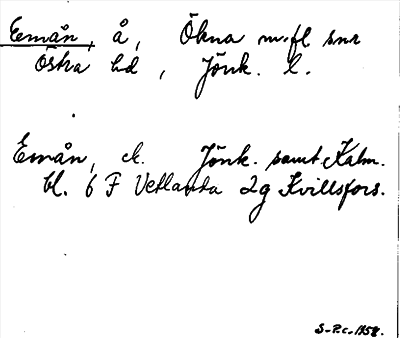 Emån, å, Ökna m.fl snr
Östra hd, Jönk. l.
Emån, ek. Jönk. samt Kalm.
bl. 6 F Vetlanda 2g Kvillsfors.
S-P.c. 1958.